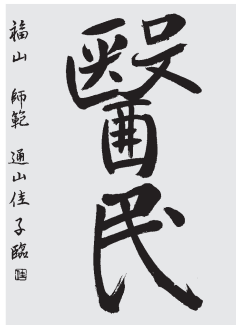 醫民
福山 師範 通山佳子臨